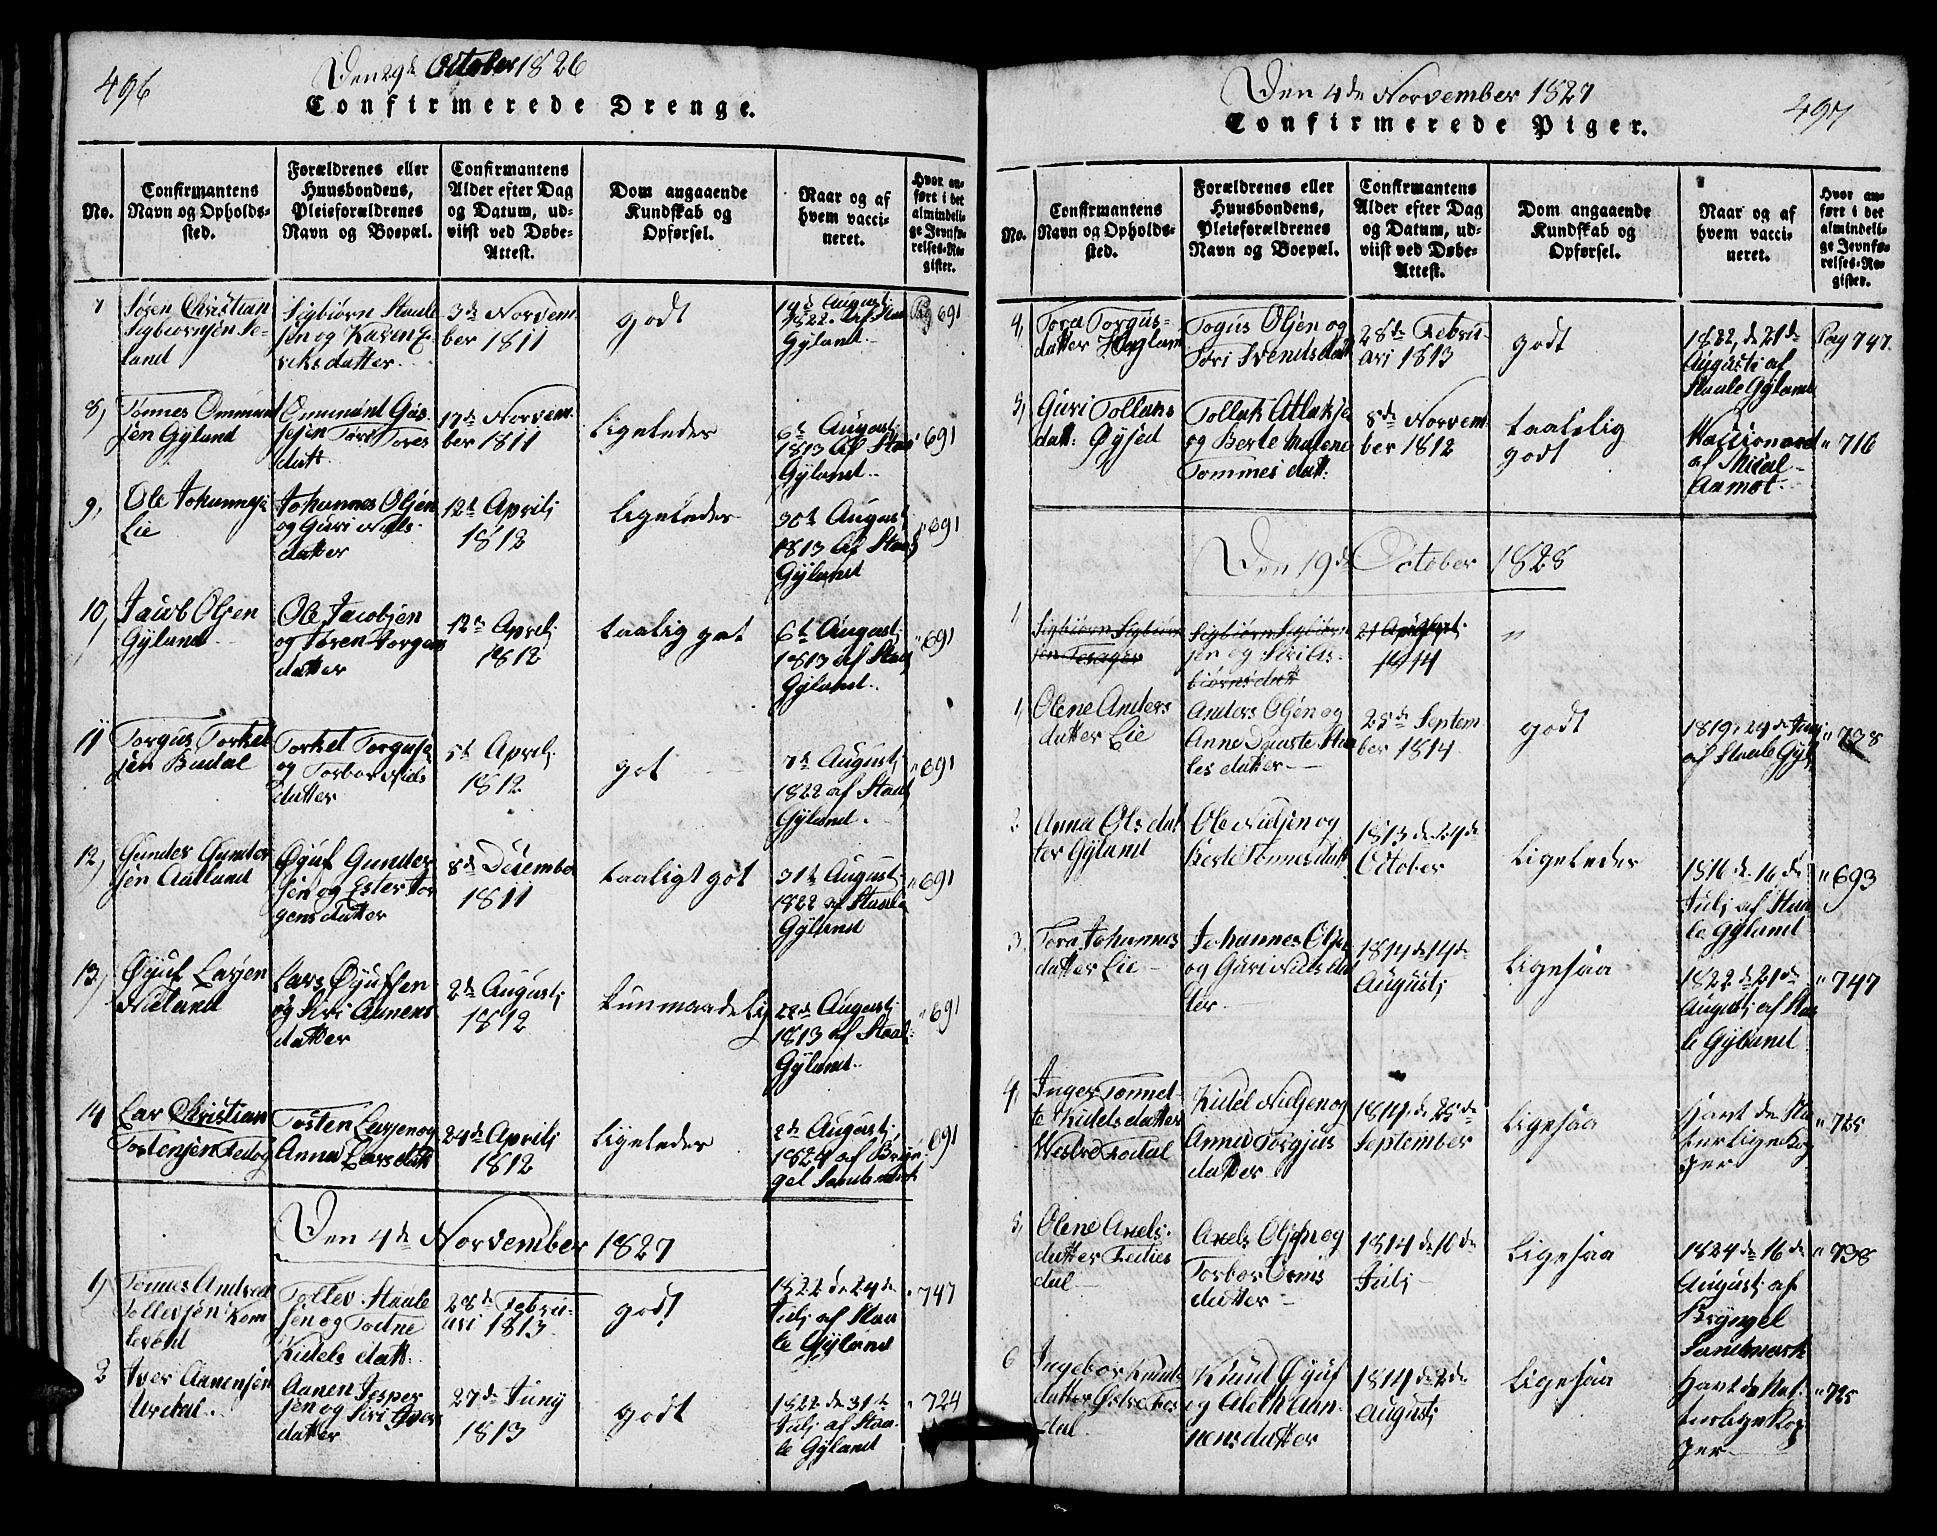 496
Den 29de October 1826
Confirmerede Drenge.
No.
Confirmantens
Navn og Opholds-
sted.
Forældrenes eller
Huusbondens,
Pleieforældrenes
Navn og Boepæl.
Confirmantens
Alder efter Dag
og Datum, ud-
viist ved Døbe-
Attest.
Dom angaaende
Kundskab og
Opførsel.
Naar og af
hvem vacci-
neret.
Hvor an-
ført i det
almindeli-
ge Jevnfø-
relses-Re-
gister.
7
Søren Christian
Sigbiørnsen
Sigbiørn Staale
sen og Karen E-
riksdatter
3de Novem
ber 1811
godt
Augustj
1822
Gyland
Pag 691
8,
Tønnes Ommund
sen Gyland
Ommund Gus
sen Tore
datt.
17de Novem
ber 1811
Ligeledes
6te Augustj
1813 af Staal
Gyland
691
9,
Ole Johannes
Lie
Johannes Olsen
og Guri Niels
datter
12te Aprilj
1812
Ligeledes
30te Augustj
1813 af Staal
Gyland
" 691
10,
Jacob Olsen
Gyland
Ole Jacobsen
og Søren Torgers
datter
12te Aprilj
1812
taalig got
6te Augustj
1813 af Staal
Gyland
" 691
11
Torgus Torkel
sen Budal
Torkel Torgus
og Torbor Niels
datter
5te Aprilj
1812
got
7de Augustj
1822 af Staal
Gyland.
" 691
12,
Gunder Gunder
sen Aatland
Øyuf Gunder
sen og Ester Tor
gersdatter
8de December
1811
taaligt got
31te Augustj
1822 af Staale
Gyland
" 691
13,
Øyuf Larsen
Nieland
Lars Øyufsen
og Siri Aanens
datter
2de Augustj
1812
tunmaadelig
28de Augustj
1813 af Staal
Gyland
" 691
14
Lar Christian
Tostensen Fedog
Tosten Larsen og
Anna Larsdatt
24de Aprilj
1812
Ligeledes
2de Augustj
1824 af Bryn
gel Sandmark
691
Den 4de November 1827
1,
Tønnes Andreas
Tollevsen Kom
levold
Tollev Staale
sen og Todne
Kidels datt.
28de Febru-
ari 1813
godt
1822 de 24de
Julj af Staa
le Gyland
" 747
2
Iver Aanensen
Urdal.
Aanen Jesper
sen og Siri Ivers
datter
27de Junj
1813
godt
1822 de 31te
Julj af Staa-
le Gyland
" 724
497
Den 4de November 1827
Confirmerede Piger.
No.
Confirmantens
Navn og Opholds-
sted.
Forældrenes eller
Huusbondens,
Pleieforældrenes
Navn og Boepæl.
Confirmantens
Alder efter Dag
og Datum, ud-
viist ved Døbe-
Attest.
Dom angaaende
Kundskab og
Opførsel.
Naar og af
hvem vacci-
neret.
Hvor an-
ført i det
almindeli-
ge Jevnfø-
relses-Re-
gister.
4,
Tora Torgus-
datter
Togus Olsen og
Siri Svendsdatt
28de Febru-
ari 1813
godt
1822, de 21de
Augustj af
Staale Gyland
Pag 747.
5,
Guri Tollaks
datt: Øysed
Tollak Atlaksen
og Berte Malene
Tommes datt:
8de Novem
ber 1812
taalelig
godt
Vaccioneret
af
Aamot.
" 716
Den 19de October 1828
1
Sigbiørn Sigbiørn
sen
Sigbiørn Sigbiørn
sen og Siri
biørnsdatt
21
1814
"
1,
Olene Anders
datter Lie
Anders Olsen og
Anne Staa
lesdatter
25de Septem
ber 1814
godt
1819, 24de Junj
af Staale Gyl.
" 738
2
Anna Olsdat
ter Gyland
Ole Nielsen og
Berte Tønnesdatt
1813 de 24de
October
Ligeledes
1816 de 16de
Julj af Staa
le Gyland
" 693
3,
Tora Johannes
datter Lie
Johannes Olsen
og Guri Niels dat
ter
1814 de 14de
Augustj
Ligesaa
1822 de 21de
Augustj af Staa
le Gyland
" 747
4,
Inger Tonnet-
te Kidels datter
Vestre Fedal
Kidel Nielsen og
Anna Torgius
datter
1814 de 25de
September
Ligesaa
Havt de Na
turlige Kop
per
" 725
5,
Olene Axels-
datter Fedies
dal
Axels Olsen og
Torbor Orms
datter
1814 de 10de
Julj
Ligesaa
1824 de 16de
Augustj af
Bryngel
Sandmark
" 738
6
Ingebor Knuds
datter Østre Fes
dal
Knud Øyuf
og Alethe Aa
nensdatter
1814 de 2de
Augustj
Ligesaa
Havt de Na-
turlige Kop
per
" 725